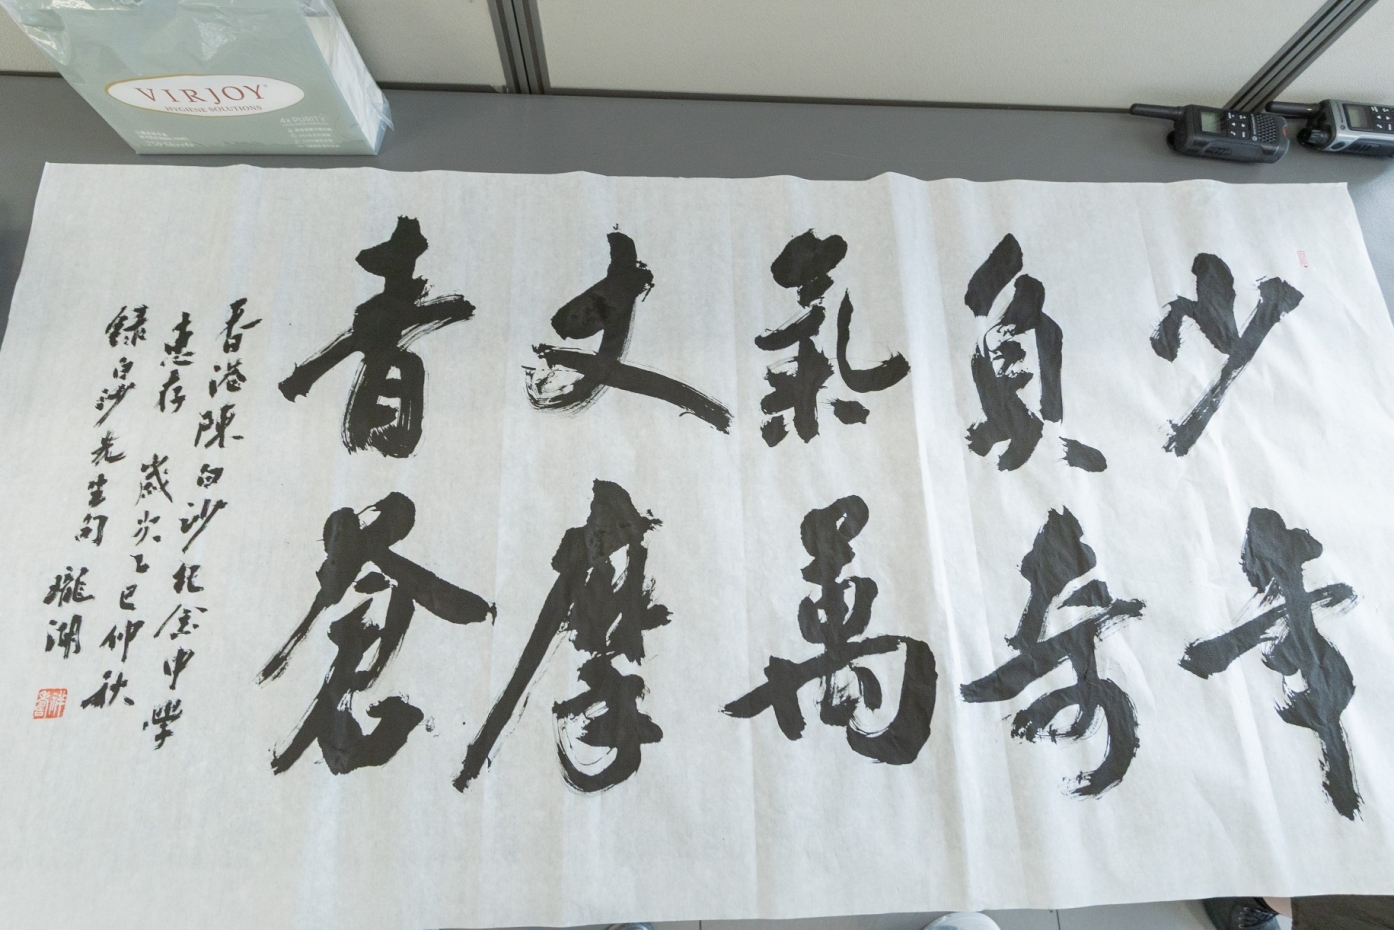 少年
負奇
氣萬
丈摩
青蒼
香港陳白沙紀念中學
惠存 歲次乙巳仲秋
錄白沙先生句 瓏湖
VIRJOY
HYGIENE SOLUTIONS
4x PURITY